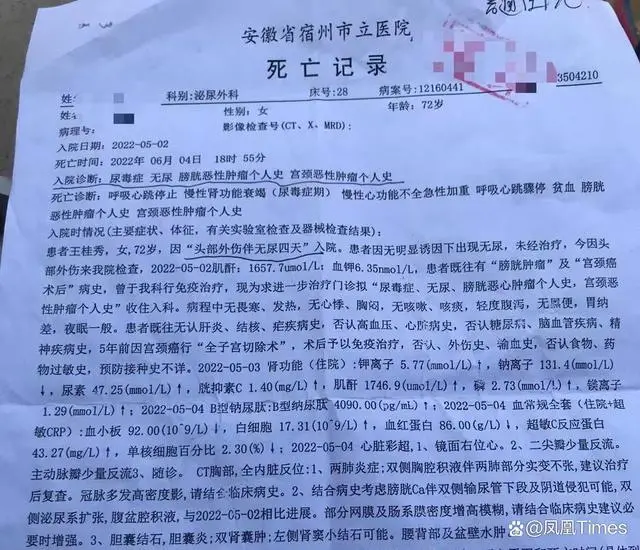 安徽省宿州市立医院
死亡记录
3504210
科别:泌尿外科 床号:28 病案号:12160441
姓名:
性别:女 年龄:72岁
病理号: 影像检查号(CT、X、MRD):
入院日期:2022-05-02
死亡时间:2022年 06月 04日 18时 55分
入院诊断:尿毒症 无尿 膀胱恶性肿瘤个人史 宫颈恶性肿瘤个人史
死亡诊断:呼吸心跳停止 慢性肾功能衰竭（尿毒症期） 慢性心功能不全急性加重 呼吸心跳骤停 贫血 膀胱
恶性肿瘤个人史 宫颈恶性肿瘤个人史
入院时情况(主要症状、体征，有关实验室检查及器械检查结果):
患者王桂秀，女,72岁，因“头部外伤伴无尿四天”入院。患者因无明显诱因下出现无尿，未经治疗，今因头
部外伤来我院检查，2022-05-02肌酐：1657.7umol/L；血钾6.35nmol/L，患者既往有“膀胱肿瘤”及“宫颈癌
术后”病史，曾于我科行免疫治疗，现为求进一步治疗门诊拟“尿毒症、无尿、膀胱恶心肿瘤个人史，宫颈恶
性肿瘤个人史”收住入科。病程中无畏寒、发热，无心悸、胸闷，无咳嗽、咳痰，轻度腹泻，无黑便，胃纳
差，夜眠一般。患者既往无认肝炎、结核、疟疾病史，否认高血压、心脏病史，否认糖尿病、脑血管疾病、精
神疾病史，5年前因宫颈癌行“全子宫切除术”，术后予以免疫治疗，否认、外伤史、输血史，否认食物、药
物过敏史，预防接种史不详。2022-05-03 肾功能（住院）:钾离子 5.77(mmol/L)↑，钠离子 131.4(mmol/L)
↓，尿素 47.25(mmol/L)↑，胱抑素C 1.40(mg/L)↑，肌酐 1746.9(umol/L)↑，磷 2.73(mmol/L)↑，镁离子
1.29(mmol/L)↑；2022-05-04 B型钠尿肽:B型钠尿肽 4090.00(pg/mL)↑；2022-05-04 血常规全套（住院+超
敏CRP）:血小板 92.00(10^9/L)↓，白细胞 17.31(10^9/L)↑，血红蛋白 86.00(g/L)↓，超敏C反应蛋白
43.27(mg/L)↑，单核细胞百分比 2.30(%)↓；2022-05-04 心脏彩超,1、镜面右位心。2、二尖瓣少量反流。
主动脉瓣少量反流3、随诊。 CT胸部,全内脏反位:1、两肺炎症;双侧胸腔积液伴两肺部分实变不张,建议治疗
后复查。冠脉多发高密度影,请结合临床病史。2、结合病史考虑膀胱Ca伴双侧输尿管下段及阴道侵犯可能,双
侧泌尿系扩张,腹盆腔积液,与2022-05-02相比进展。部分网膜及肠系膜密度增高模糊,请结合临床病史建议必
要时增强。3、胆囊结石,胆囊炎;双肾囊肿;左侧肾窦小结石可能。腰背部及盆壁水肿
@凤凰Times